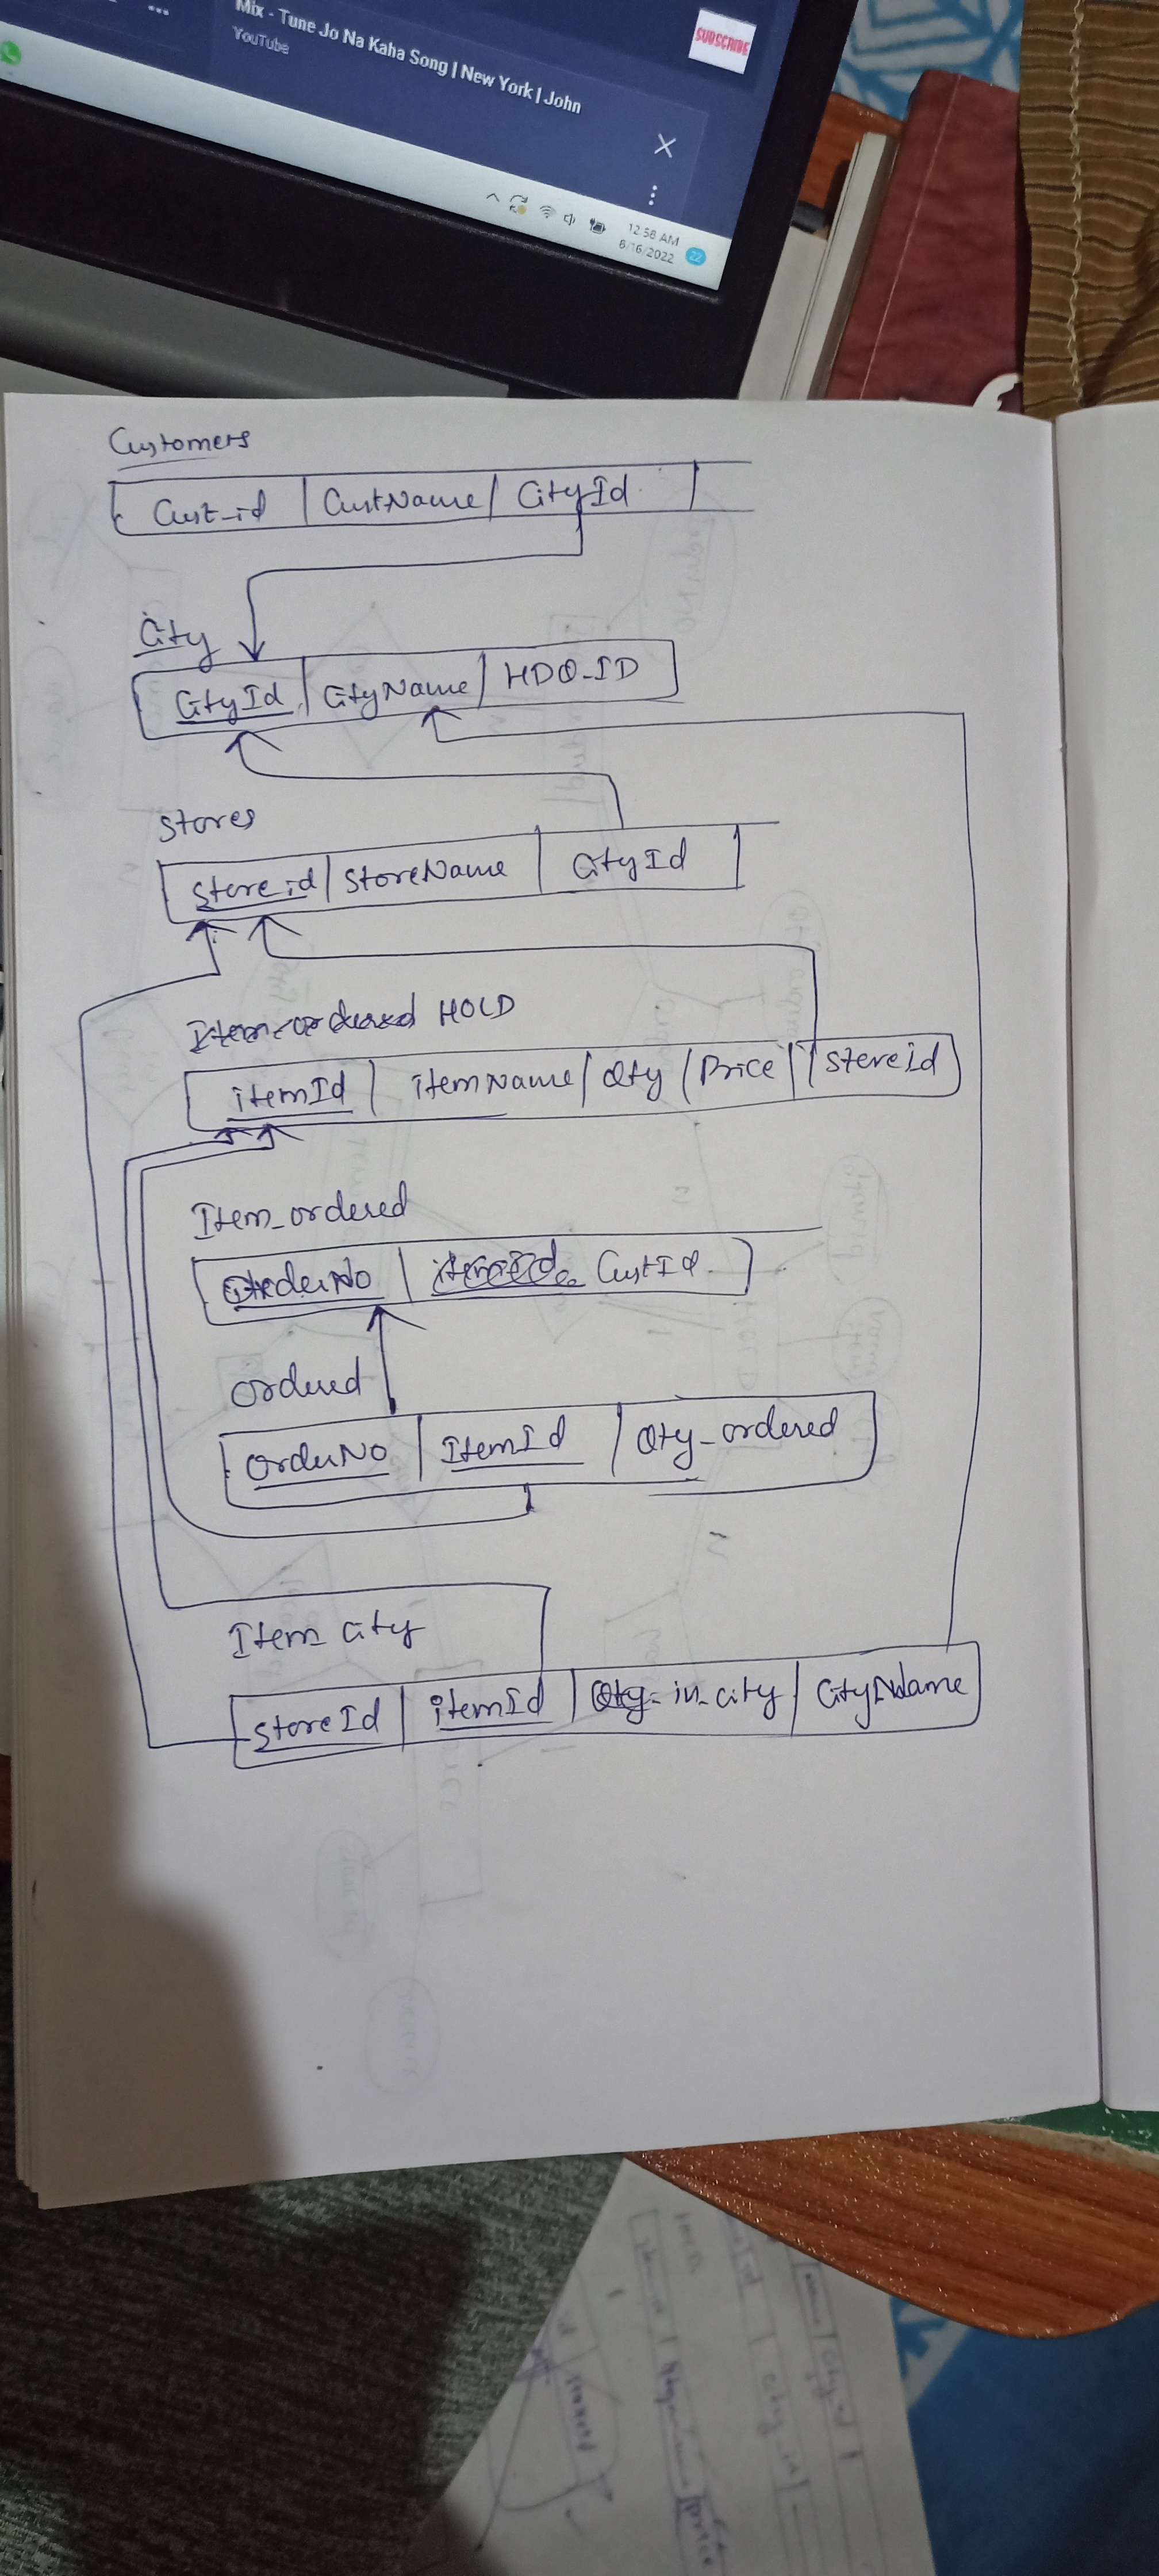 Mix - Tune Jo Na Kaha Song | New York | John
YouTube
SUBSCRIBE
12:58 AM
8/16/2022
22
Customers
Cust-id CustName CityId
City
CityId CityName HDQ-ID
Stores
Store id StoreName CityId
HOLD
itemId itemName Qty Price StoreId
Item_ordered
OrderNo CustId
Ordered
OrderNo ItemId Qty_ordered
Item_City
StoreId itemId Qty-in-city CityName